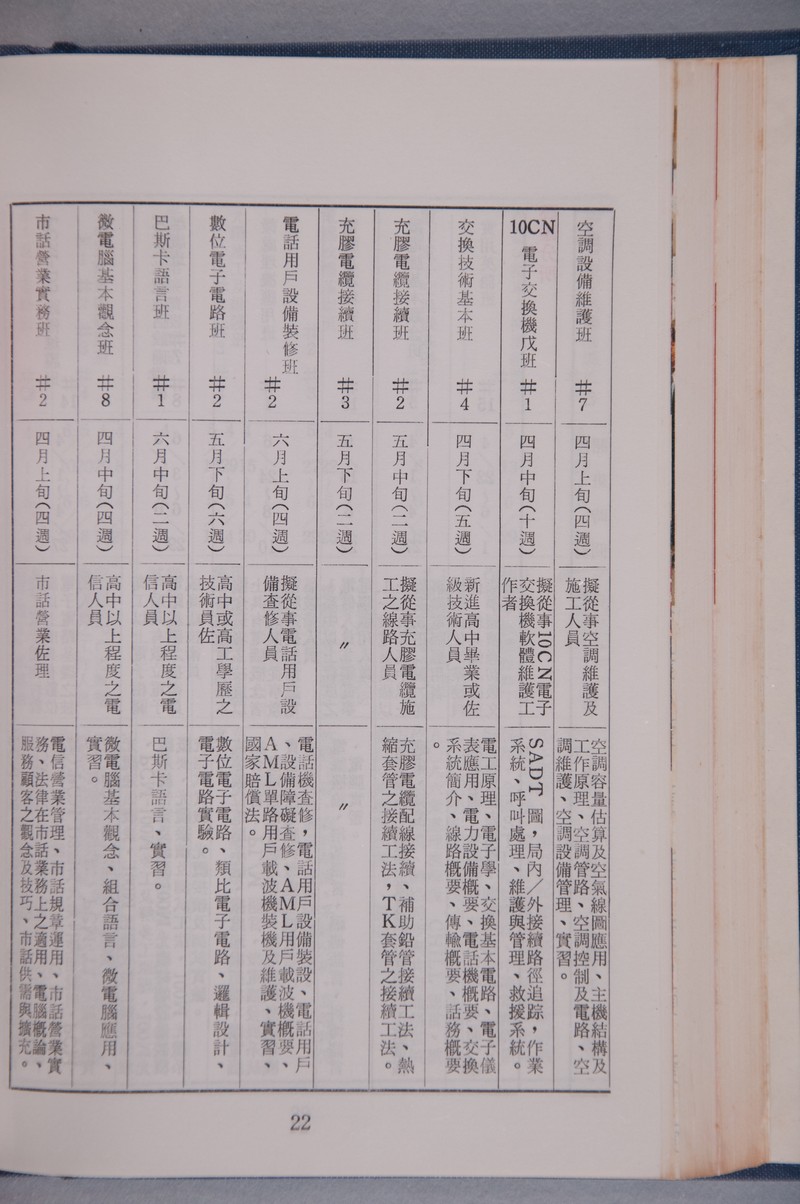 空調設備維護班 #7
四月上旬(四週)
擬從事空調維護及
施工人員
空調容量估算及空氣線圖應用、主機結構及
工作原理、空調管路、空調控制及電路、空
調維護、空調設備管理、實習。
10CN電子交換機戊班 #1
四月中旬(十週)
擬從事10CN電子
交換機軟體維護工
作者
SADT圖,局內/外接續路徑追踪,作業
系統、呼叫處理、維護與管理、救援系統。
交換技術基本班 #4
四月下旬(五週)
新進高中畢業或佐
級技術人員
電工原理、電子學、交換基本電路、電子儀
表應用、電力設備概要、電話機概要、交換
系統簡介、線路概要、傳輸概要、話務概要
。
充膠電纜接續班 #2
五月中旬(二週)
擬從事充膠電纜施
工之線路人員
充膠電纜配線接續、補助鉛管接續工法、熱
縮套管之接續工法,TK套管之接續工法。
充膠電纜接續班 #3
五月下旬(二週)
〃
〃
電話用戶設備裝修班 #2
六月上旬(四週)
擬從事電話用戶設
備查修人員
電話機查修,電話用戶設備裝設、電話用戶
、設備障礙查修、AML用戶載波機概要、
AML單路用戶載波機裝機及維護、實習、
國家賠償法。
數位電子電路班 #2
五月下旬(六週)
高中或高工學歷之
技術員佐
數位電子電路、類比電子電路、邏輯設計、
電子電路實驗。
巴斯卡語言班 #1
六月中旬(二週)
高中以上程度之電
信人員
巴斯卡語言、實習。
微電腦基本觀念班 #8
四月中旬(四週)
高中以上程度之電
信人員
微電腦基本觀念、組合語言、微電腦應用、
實習。
市話營業實務班 #2
四月上旬(四週)
市話營業佐理
電信營業管理、市話規章運用、市話營業實
務、法律在市話業務上之適用、電腦概論、
服務顧客之觀念及技巧、市話供需與擴充。
22